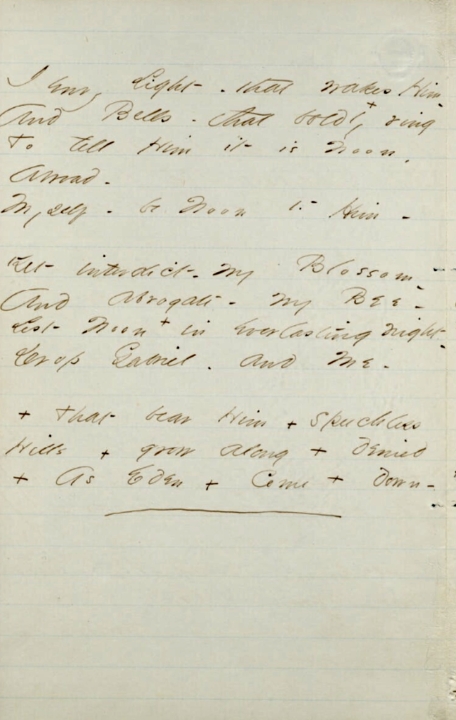 I envy Light - that wakes Him -
And Bells - that boldly + ring
To tell Him it is Noon,
Abroad -
Myself - be Noon to Him -
Yet interdict - my Blossom -
And abrogate - my Bee -
Lest Noon + in Everlasting Night -
Drop Gabriel - and me -
+ that bear Him + Speechless
Hills + grow along + Denied
+ As Eden + Come + Down -